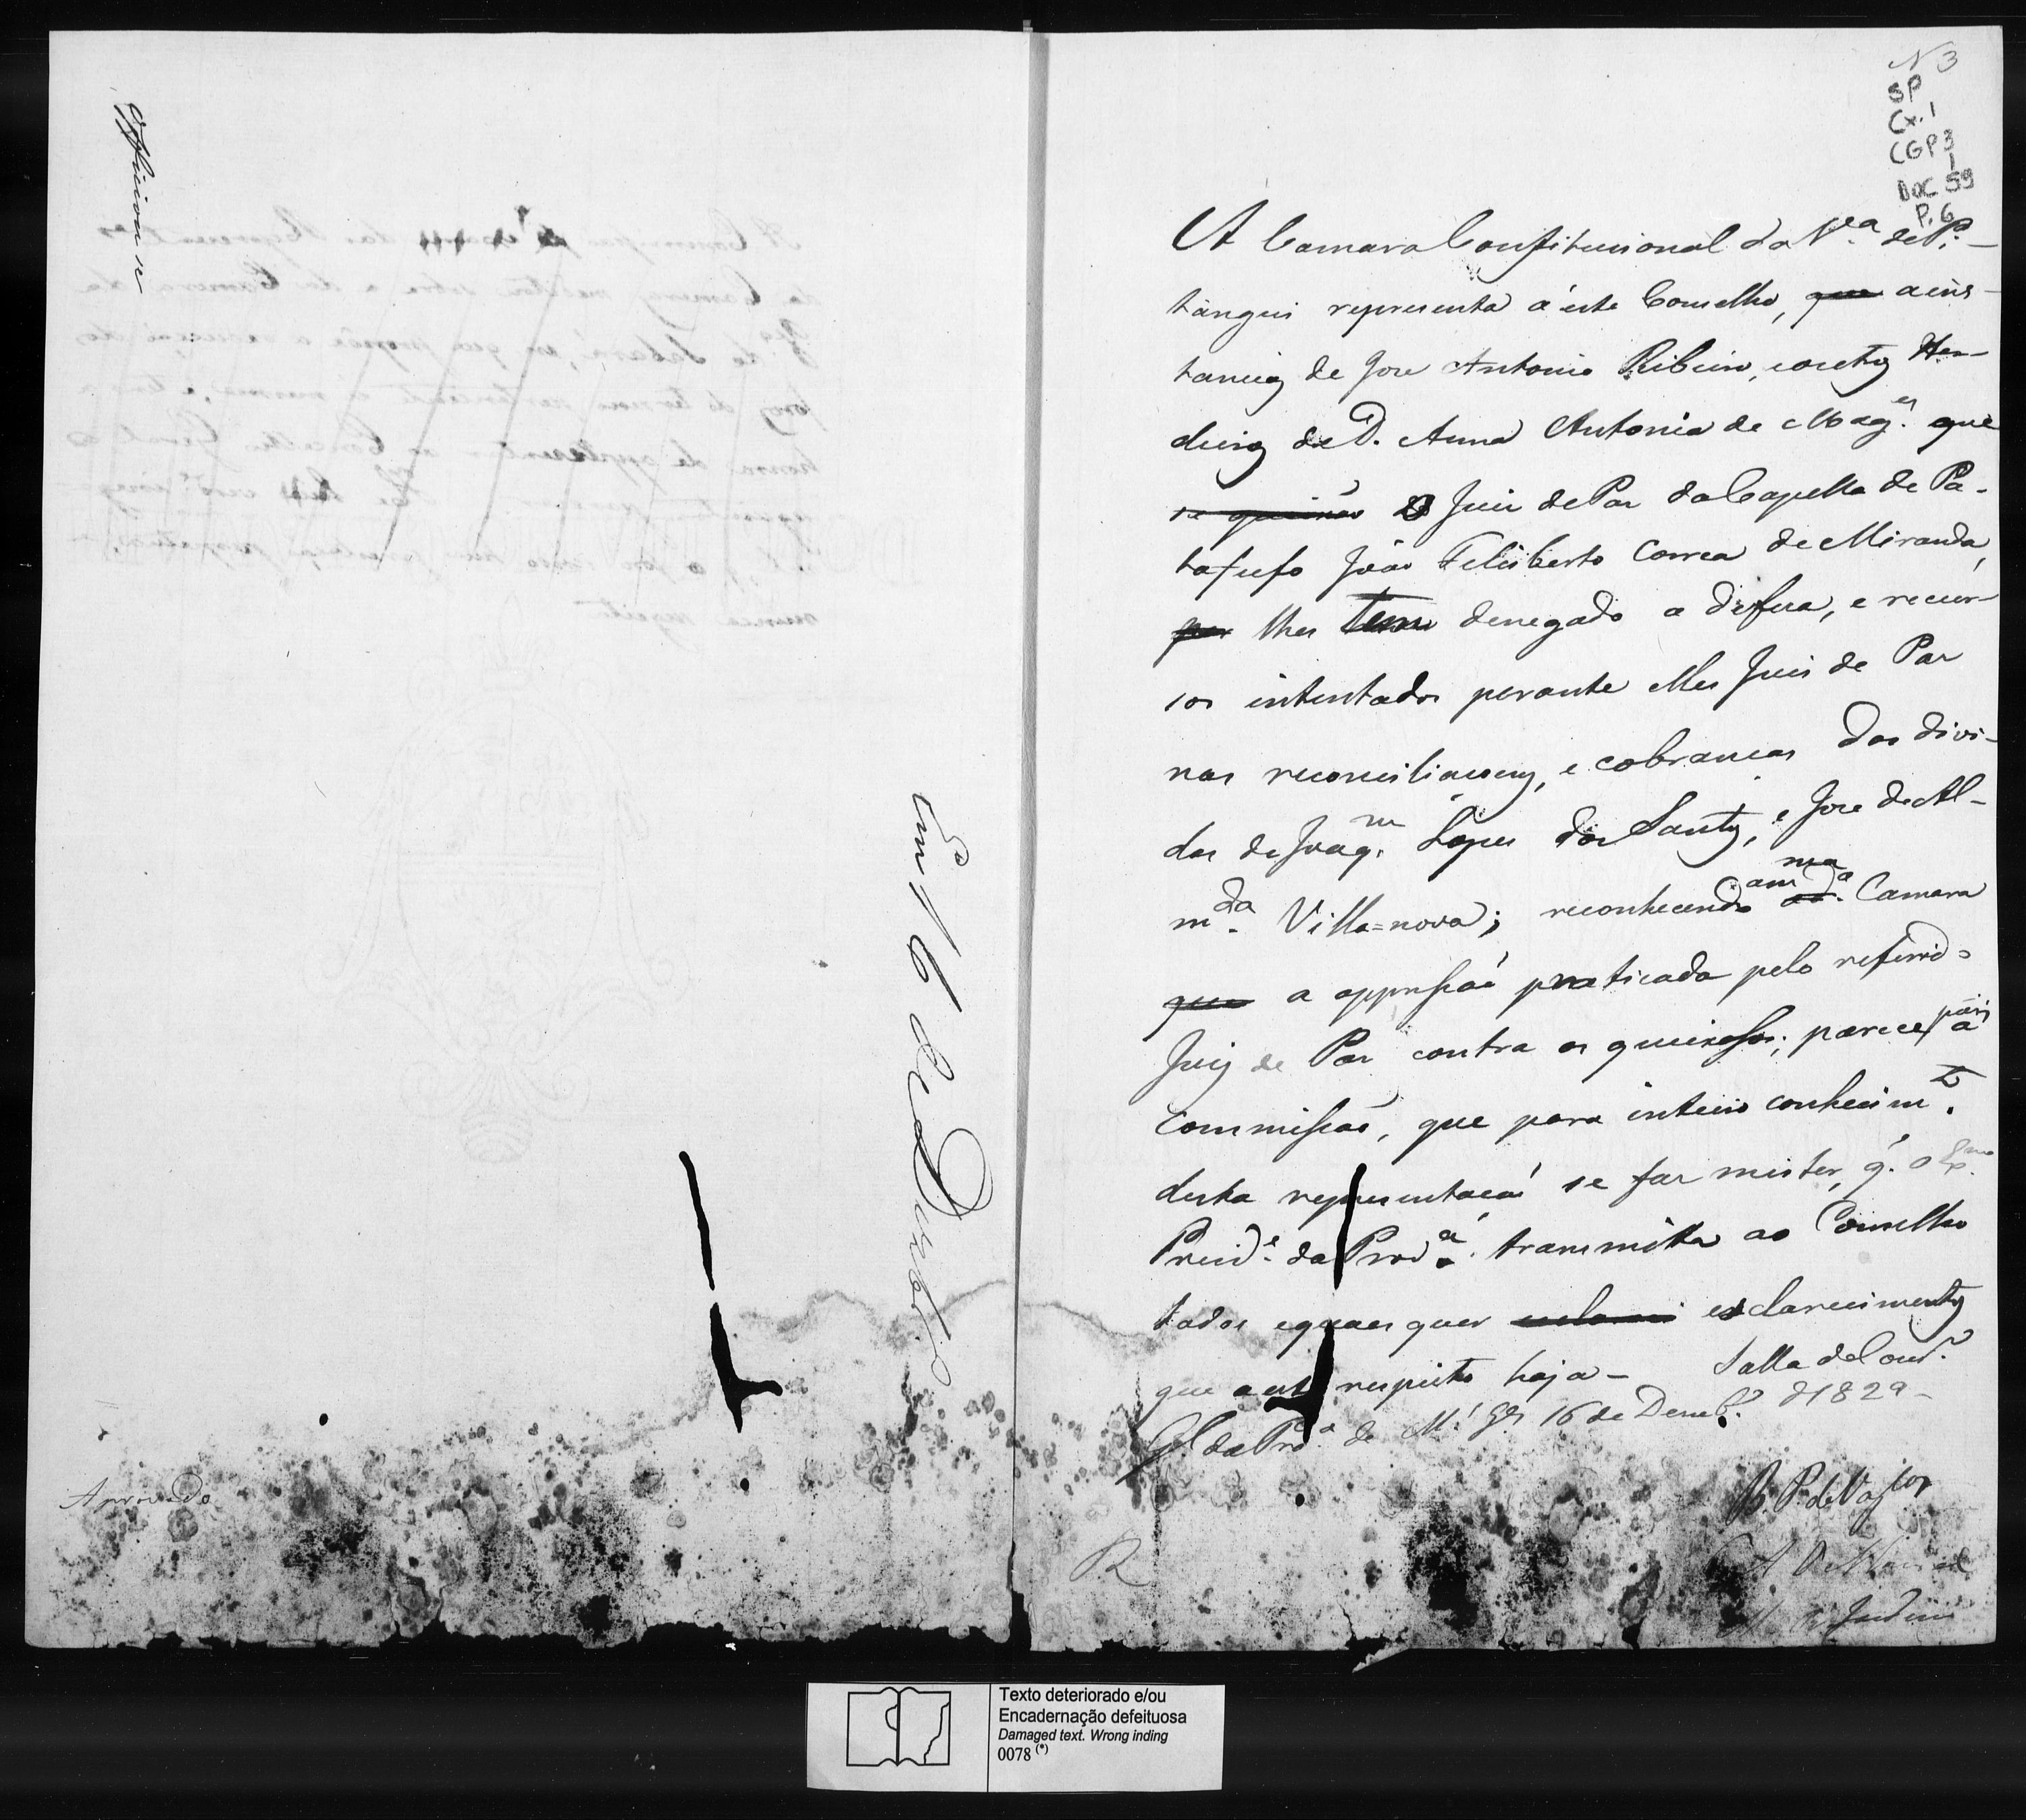 Officiou se
Em 16 de Dezbro
Aprovado
N 3
SP
Cx. 1
CGP 3
1
DOC 59
P. 6
A Camara Constitucional da Va. de Pi-
tangui representa á este Conselho, que a ins-
tancia de Jose Antonio Ribeiro, e outros Her-
deiros de D. Anna Antonia de Mages. que
o Juiz de Paz da Capella de Pa-
tafufo João Feliсberto Correa de Miranda,
por lhes tem denegado a defesa, e recur-
sos intentados perante elles Juiz de Paz
nas reconciliacoens, e cobrancas das divi-
das de Joaqm. Lopes dos Santos, e Jose de Al-
mda. Villa=nova; reconhecendo Camara
que a oppressaõ praticada pelo referido
Juiz de Paz contra os queixosos; parece pois á
Commissaõ, que para inteiro conhecimto.
desta representacaõ se faz mister, q. o Exmo.
Prezide. da Prova. transmitta ao Conselho
todos e quaes quer esclarecimentos
que a respeito haja- Salla do Conso.
Gl. da Prova. de Ms. Gs. 16 de Dezebro. d 1829-
B. P. de Vasclos
R
Texto deteriorado e/ou
Encadernação defeituosa
Damaged text. Wrong inding
0078 (*)